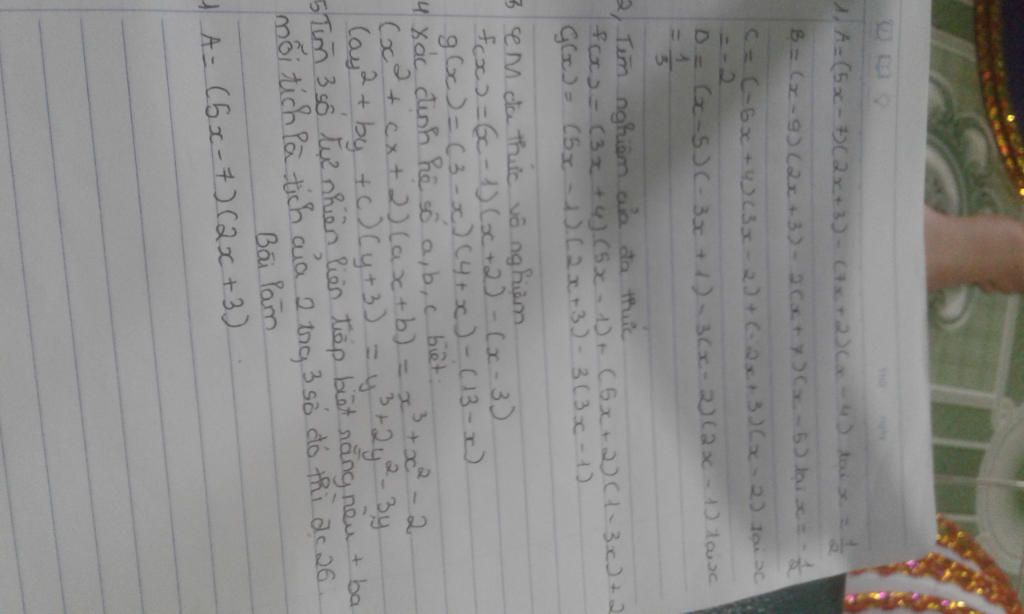 1, A = (5x - 7)(2x + 3) - (7x + 2)(x - 4) tại x = 1/2
B = (x - 9)(2x + 3) - 2(x + 7)(x - 5) tại x = -1/2
C = (-5x + 4)(3x - 2) + (-2x + 3)(x - 2) tại x
= -2
D = (x - 5)(-3x + 1) - 3(x - 2)(2x - 1) tại x
= 1/3
2, Tìm nghiệm của đa thức
f(x) = (3x + 4)(5x - 1) + (5x + 2)(1 - 3x) + 2
g(x) = (5x - 1)(2x + 3) - 3(3x - 1)
3 CM đa thức vô nghiệm
f(x) = (x - 1)(x + 2) - (x - 3)
g(x) = (3 - x)(4 + x) - (13 - x)
4 Xác định hệ số a, b, c biết:
(x² + cx + 2)(ax + b) = x³ + x² - 2
(ay² + by + c)(y + 3) = y³ + 2y² - 3y
5 Tìm 3 số tự nhiên liên tiếp biết rằng nếu + ba
mỗi tích là tích của 2 trg 3 số đó thì đc 26.
Bài làm
1 A = (5x - 7)(2x + 3)